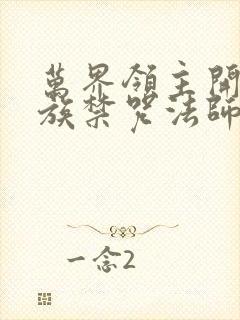 萬界領主開
族禁咒法師
一念2